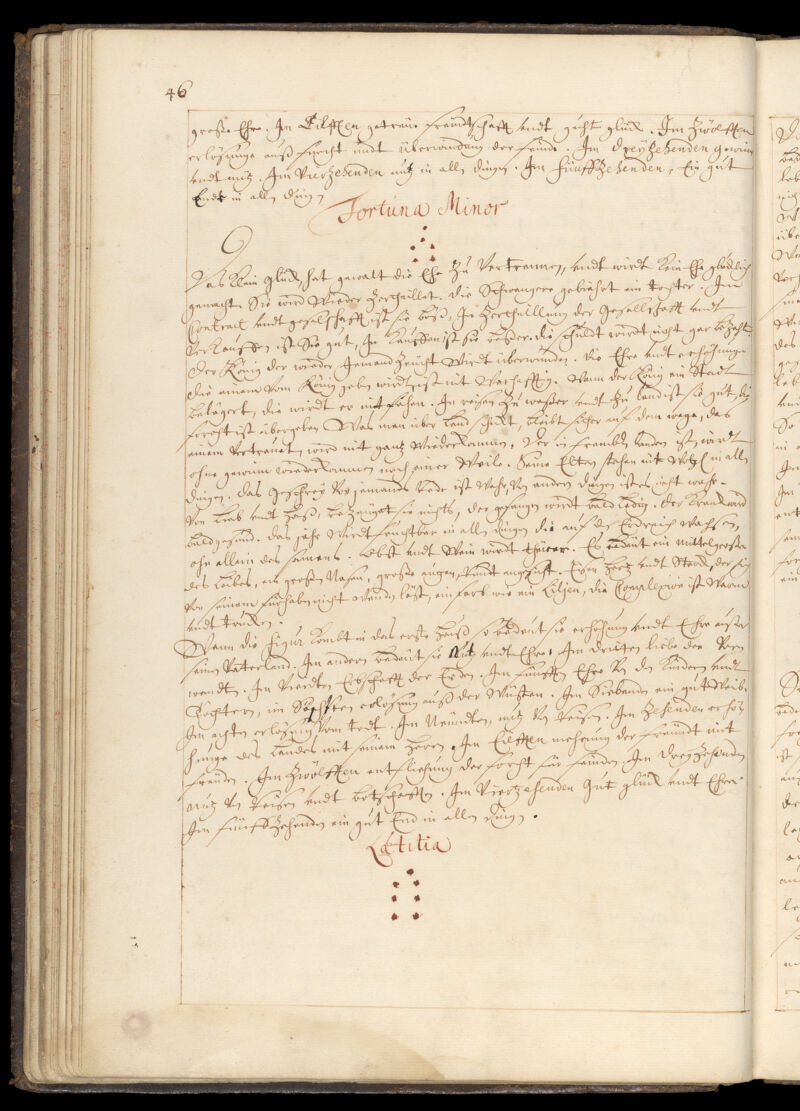 46
große Ehr. In Eilfften getreue freündtschafft undt gucht glück. Im Zwölfften
erlösunge auß forcht undt überwindung der feindt. Im Dreyzehenden gewin
undt nutz. Im Vierzehenden nutz in alln dingen. Im fünffzehenden, Ein gut
Endt in alln dingen
Fortuna Minor
Das klein glück, hat gewalt die Ehe zu Vertrennen, undt wirdt kein Ehe glücklich
gemacht Sie wird wieder zertheillet. Die Schwangere gebiehret ein tochter. Im
Contract undt geselschafft ist sie böß, In Zertheillung der Geselschafft undt
Verkauffen ist Sie gut, In kauffen ist sie böser. die schuldt wirdt nicht gar bezahlt.
Der König der wieder Jemand zeücht wirdt überwunden. Die Ehre undt erhöhunge
die einem vom König geben wirdt, ist nit Warhafftig. Wann der König ein Stadt
belägert, die wirdt er nit fahen. In reisen zu waßer undt zu land ist sie gut, die
forcht ist übergeben Was man über land schickt, bleibt sicher auf dem wege, das
einem Vertrauet wird mit gantz wiederkommen, Der in frembden landen ist, wirdt
ohne gewinn wiederkommen nach einer Weile. Seine Eltern stehen nit Wohl in alln
dingen. Das Geschrey von jemands bede ist Wahr, Von andern dingen ist es nicht wahr.
Von Lieb undt Haß, bezeüget sie nichts, der gefangen wirdt bald ledig. der Kranck wird
bald gesund. Das jahr wirdt fruchtbar in alln dingen die auf dem Erdreich wachsen,
ohn allein des samens. Obst undt Wein wirdt theüer. Es bedeüt ein mittelgroße
des Leibes, ein großen Nasen, große augen, rundt angesicht. Eisen hertz undt Starck, der sich
von seinem fürhaben nicht wenden läßt, ein farb wie ein Liljen, die Complexion ist Warm
undt trucken.
Wann die figur kombt in das erste hauß so bedeüt sie erhöhung undt Ehre außer
seinen Vatterland. Im andern bedeüt sie Nutz undt Ehre, Im dritten liebe der Ver
wendten. Im Vierdten Erbschafft der Erden. Im fünfften Ehre von den kindern undt
Töchtern, im Sechsten erlösung auß der Wüsten. Im Siebenden ein gut Weib.
Im achten erlösung vom todt. Im Neündten, nutz von Reisen. Im Zehenden erhö
hunge des landes mit seinem Herrn. Im Eilfften mehrung der freündt mit
freüden. Im Zwölfften entfliehung der forcht für feinden. Im Dreyzehenden
nutz von Reisen undt bottschafften. Im Vierzehenden Gut glück undt Ehre
Im fünffzehenden ein gut End in alln dingen.
Lætitia